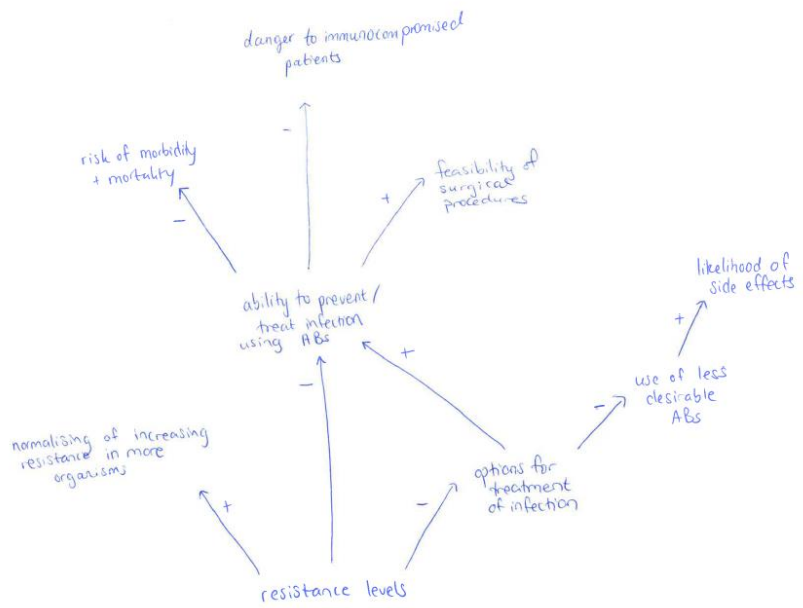 danger to immunocompromised
patients
-
risk of morbidity
+ mortality
-
+
feasibility of
surgical
procedures
likelihood of
side effects
+
ability to prevent/
treat infection
using ABs
+
-
use of less
desirable
ABs
-
normalising of increasing
resistance in more
organisms
+
-
options for
treatment
of infection
resistance levels